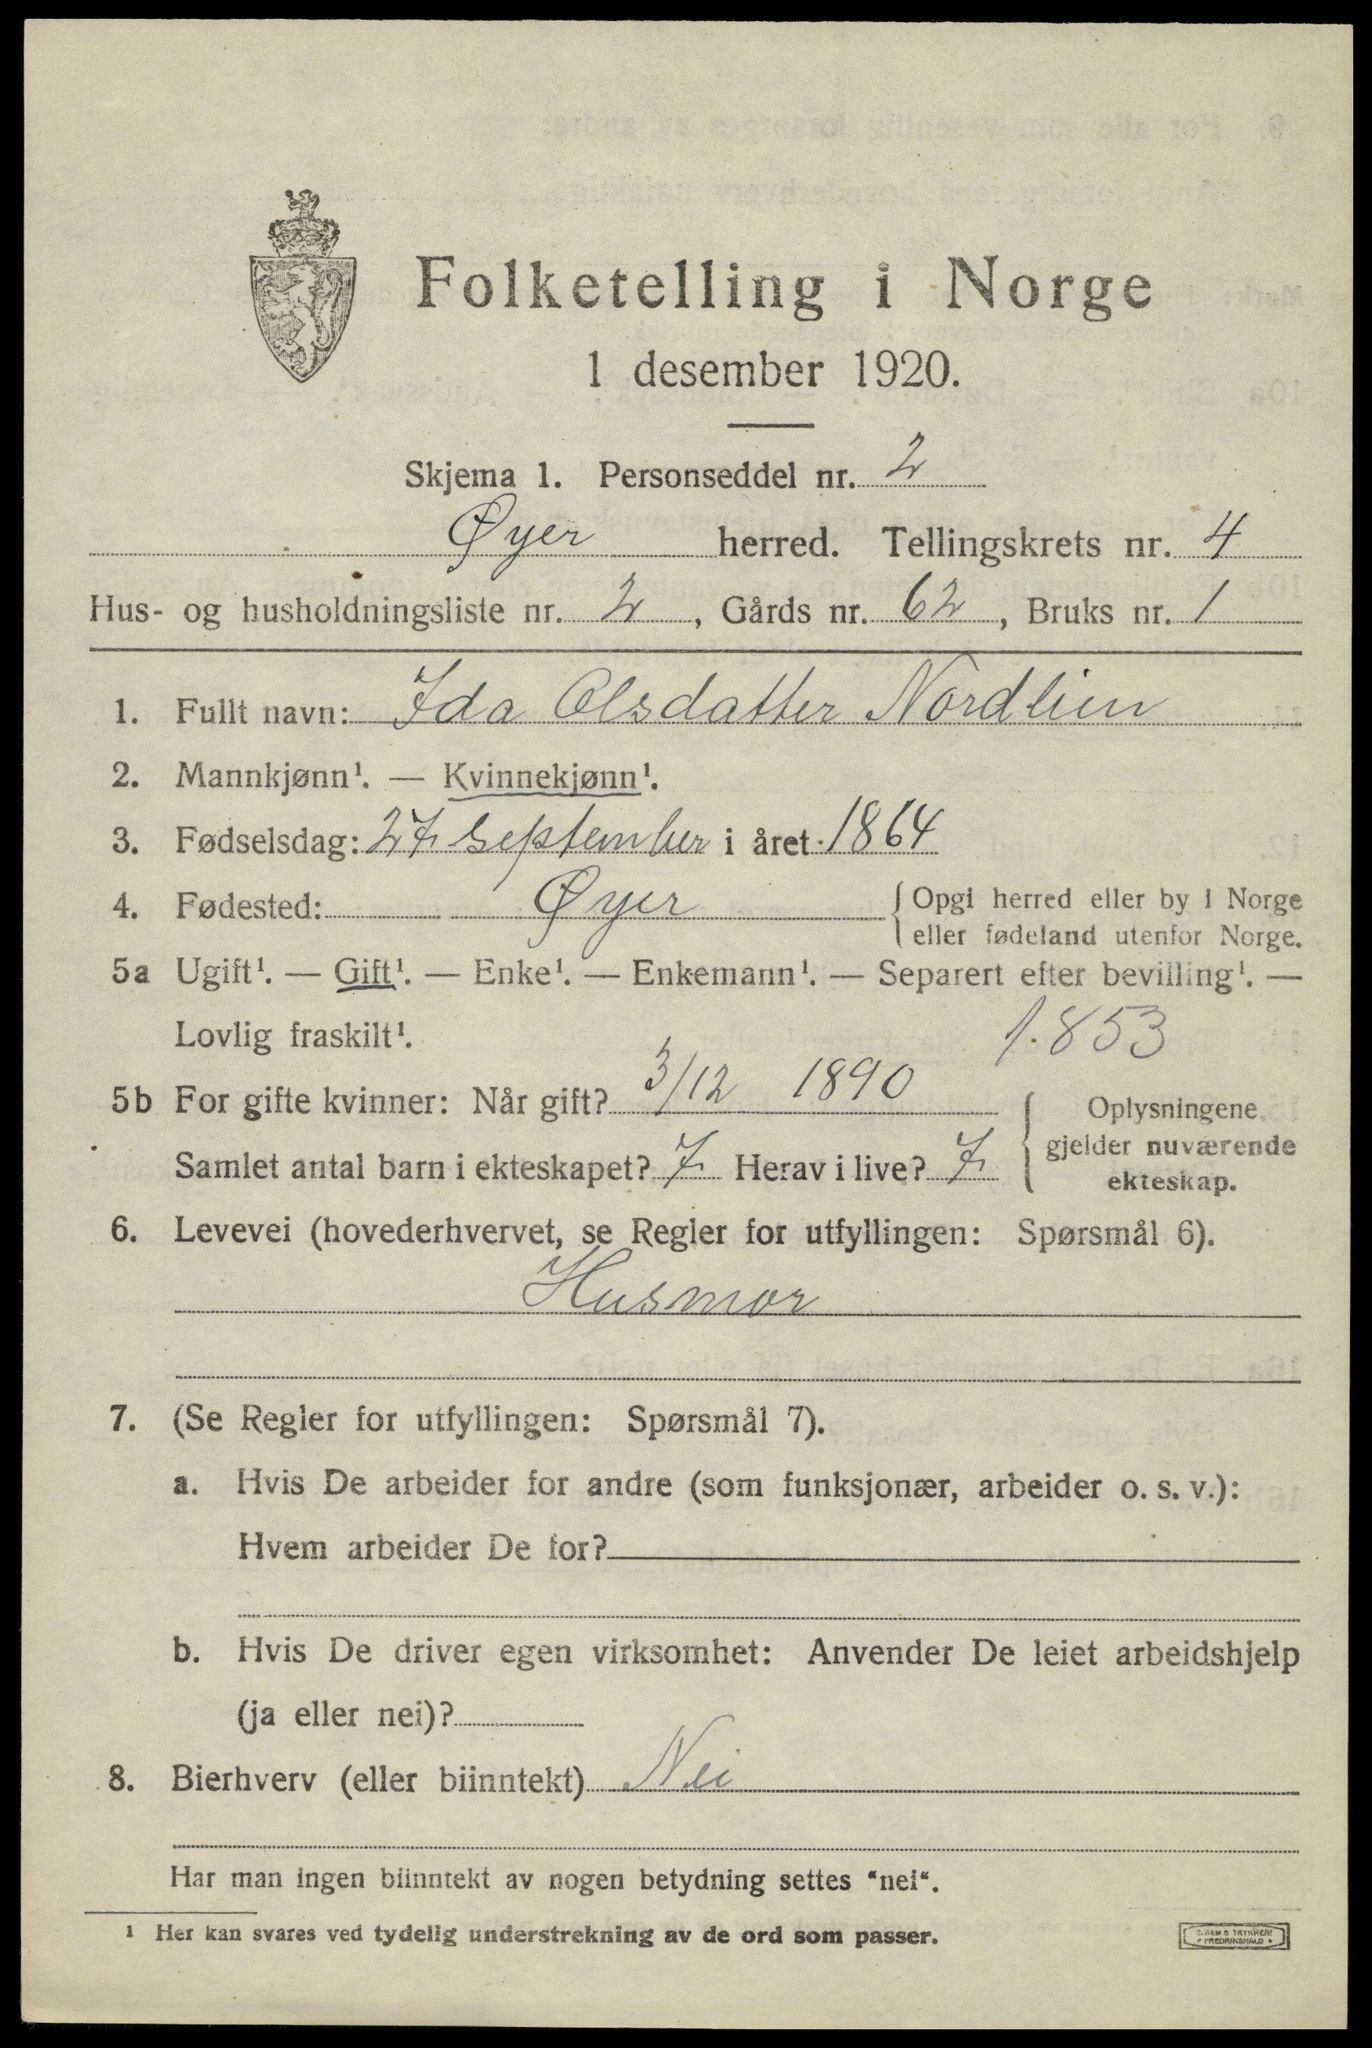 Folketelling i Norge
1 desember 1920.
Skjema 1. Personseddel nr. 2
Øyer herred. Tellingskrets nr. 4
Hus- og husholdningsliste nr. 2, Gårds nr. 62, Bruks nr. 1
1. Fullt navn: Ida Olsdatter Nordlien
2. Mannkjønn¹. — Kvinnekjønn¹.
3. Fødselsdag: 27 september i året 1864
4. Fødested: Øyer { Opgi herred eller by i Norge
eller fødeland utenfor Norge.
5a Ugift¹. — Gift¹. — Enke¹. — Enkemann¹. — Separert efter bevilling¹. —
Lovlig fraskilt¹. 1.853
5b For gifte kvinner: Når gift? 3/12 1890
Samlet antal barn i ekteskapet? 7 Herav i live? 7
{ Oplysningene
gjelder nuværende
ekteskap.
6. Levevei (hovederhvervet, se Regler for utfyllingen: Spørsmål 6).
Husmor
7. (Se Regler for utfyllingen: Spørsmål 7).
a. Hvis De arbeider for andre (som funksjonær, arbeider o. s. v.):
Hvem arbeider De for?
b. Hvis De driver egen virksomhet: Anvender De leiet arbeidshjelp
(ja eller nei)?
8. Bierhverv (eller biinntekt) Nei
Har man ingen biinntekt av nogen betydning settes "nei".
¹ Her kan svares ved tydelig understrekning av de ord som passer.